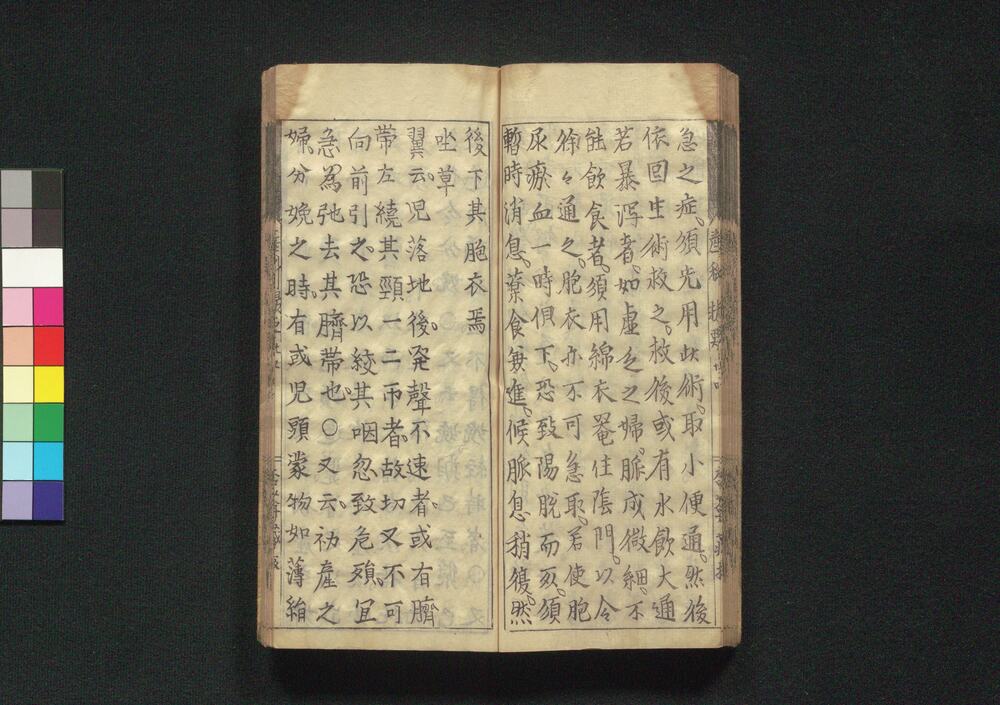 急之症。須先用此術。取小便通。然後
依回生術救之。救後或有水飲大通
若暴瀉者。如虚乏之婦。脈成微細。不
能飲食者。須用綿衣罨住陰門。以令
徐々通之。胞衣亦不可急取。若使胞
尿瘀血一時倶下。恐致陽脱而死。須
暫時消息。藥食無進。候脈息稍復。然
後下其胞衣焉
坐草
翼云。児落地後。発聲不速者。或有臍
帯左繞其頸一二帀者。故切又不可
向前引之。恐以絞其咽忽致危殞。宜
急為弛去其臍帯也。〇又云。初産之
婦。分娩之時。有或児頭蒙物如薄絹